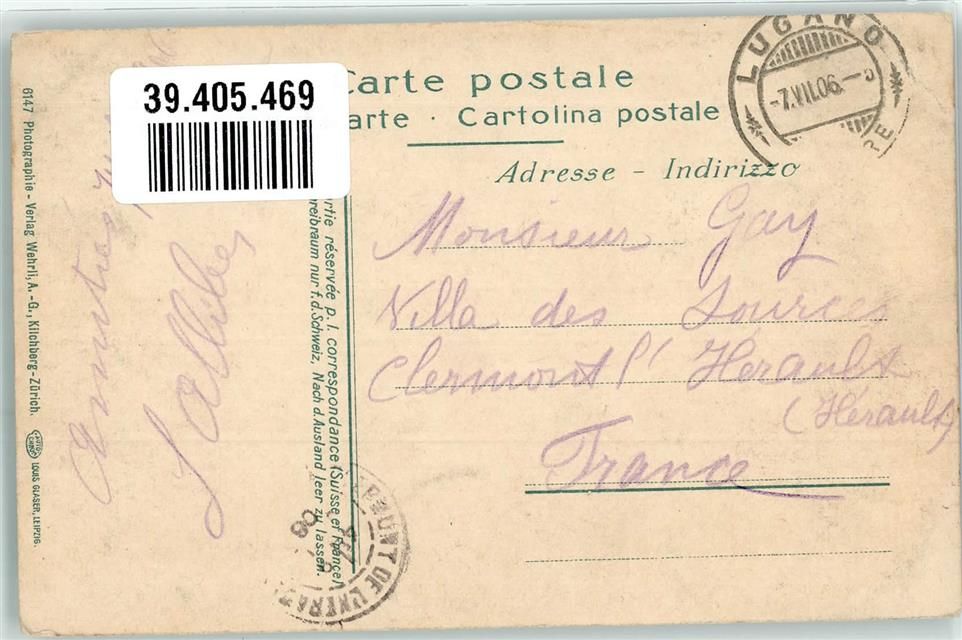 39.405.469
Carte postale
arte · Cartolina postale
Adresse - Indirizzo
LUGANO
-7.VII.06.-
Monsieur Gay
Villa des Sources
Clermont l'Herault
(Hérault)
France
rtie réservée p. l. correspondance (Suisse et France)
reibraum nur f. d. Schweiz, Nach d. Ausland leer zu lassen.
6147 Photographie - Verlag Wehrli, A.-G., Kilchberg-Zürich.
LOUIS GLASER, LEIPZIG.
MONT DE L'HERAULT
06